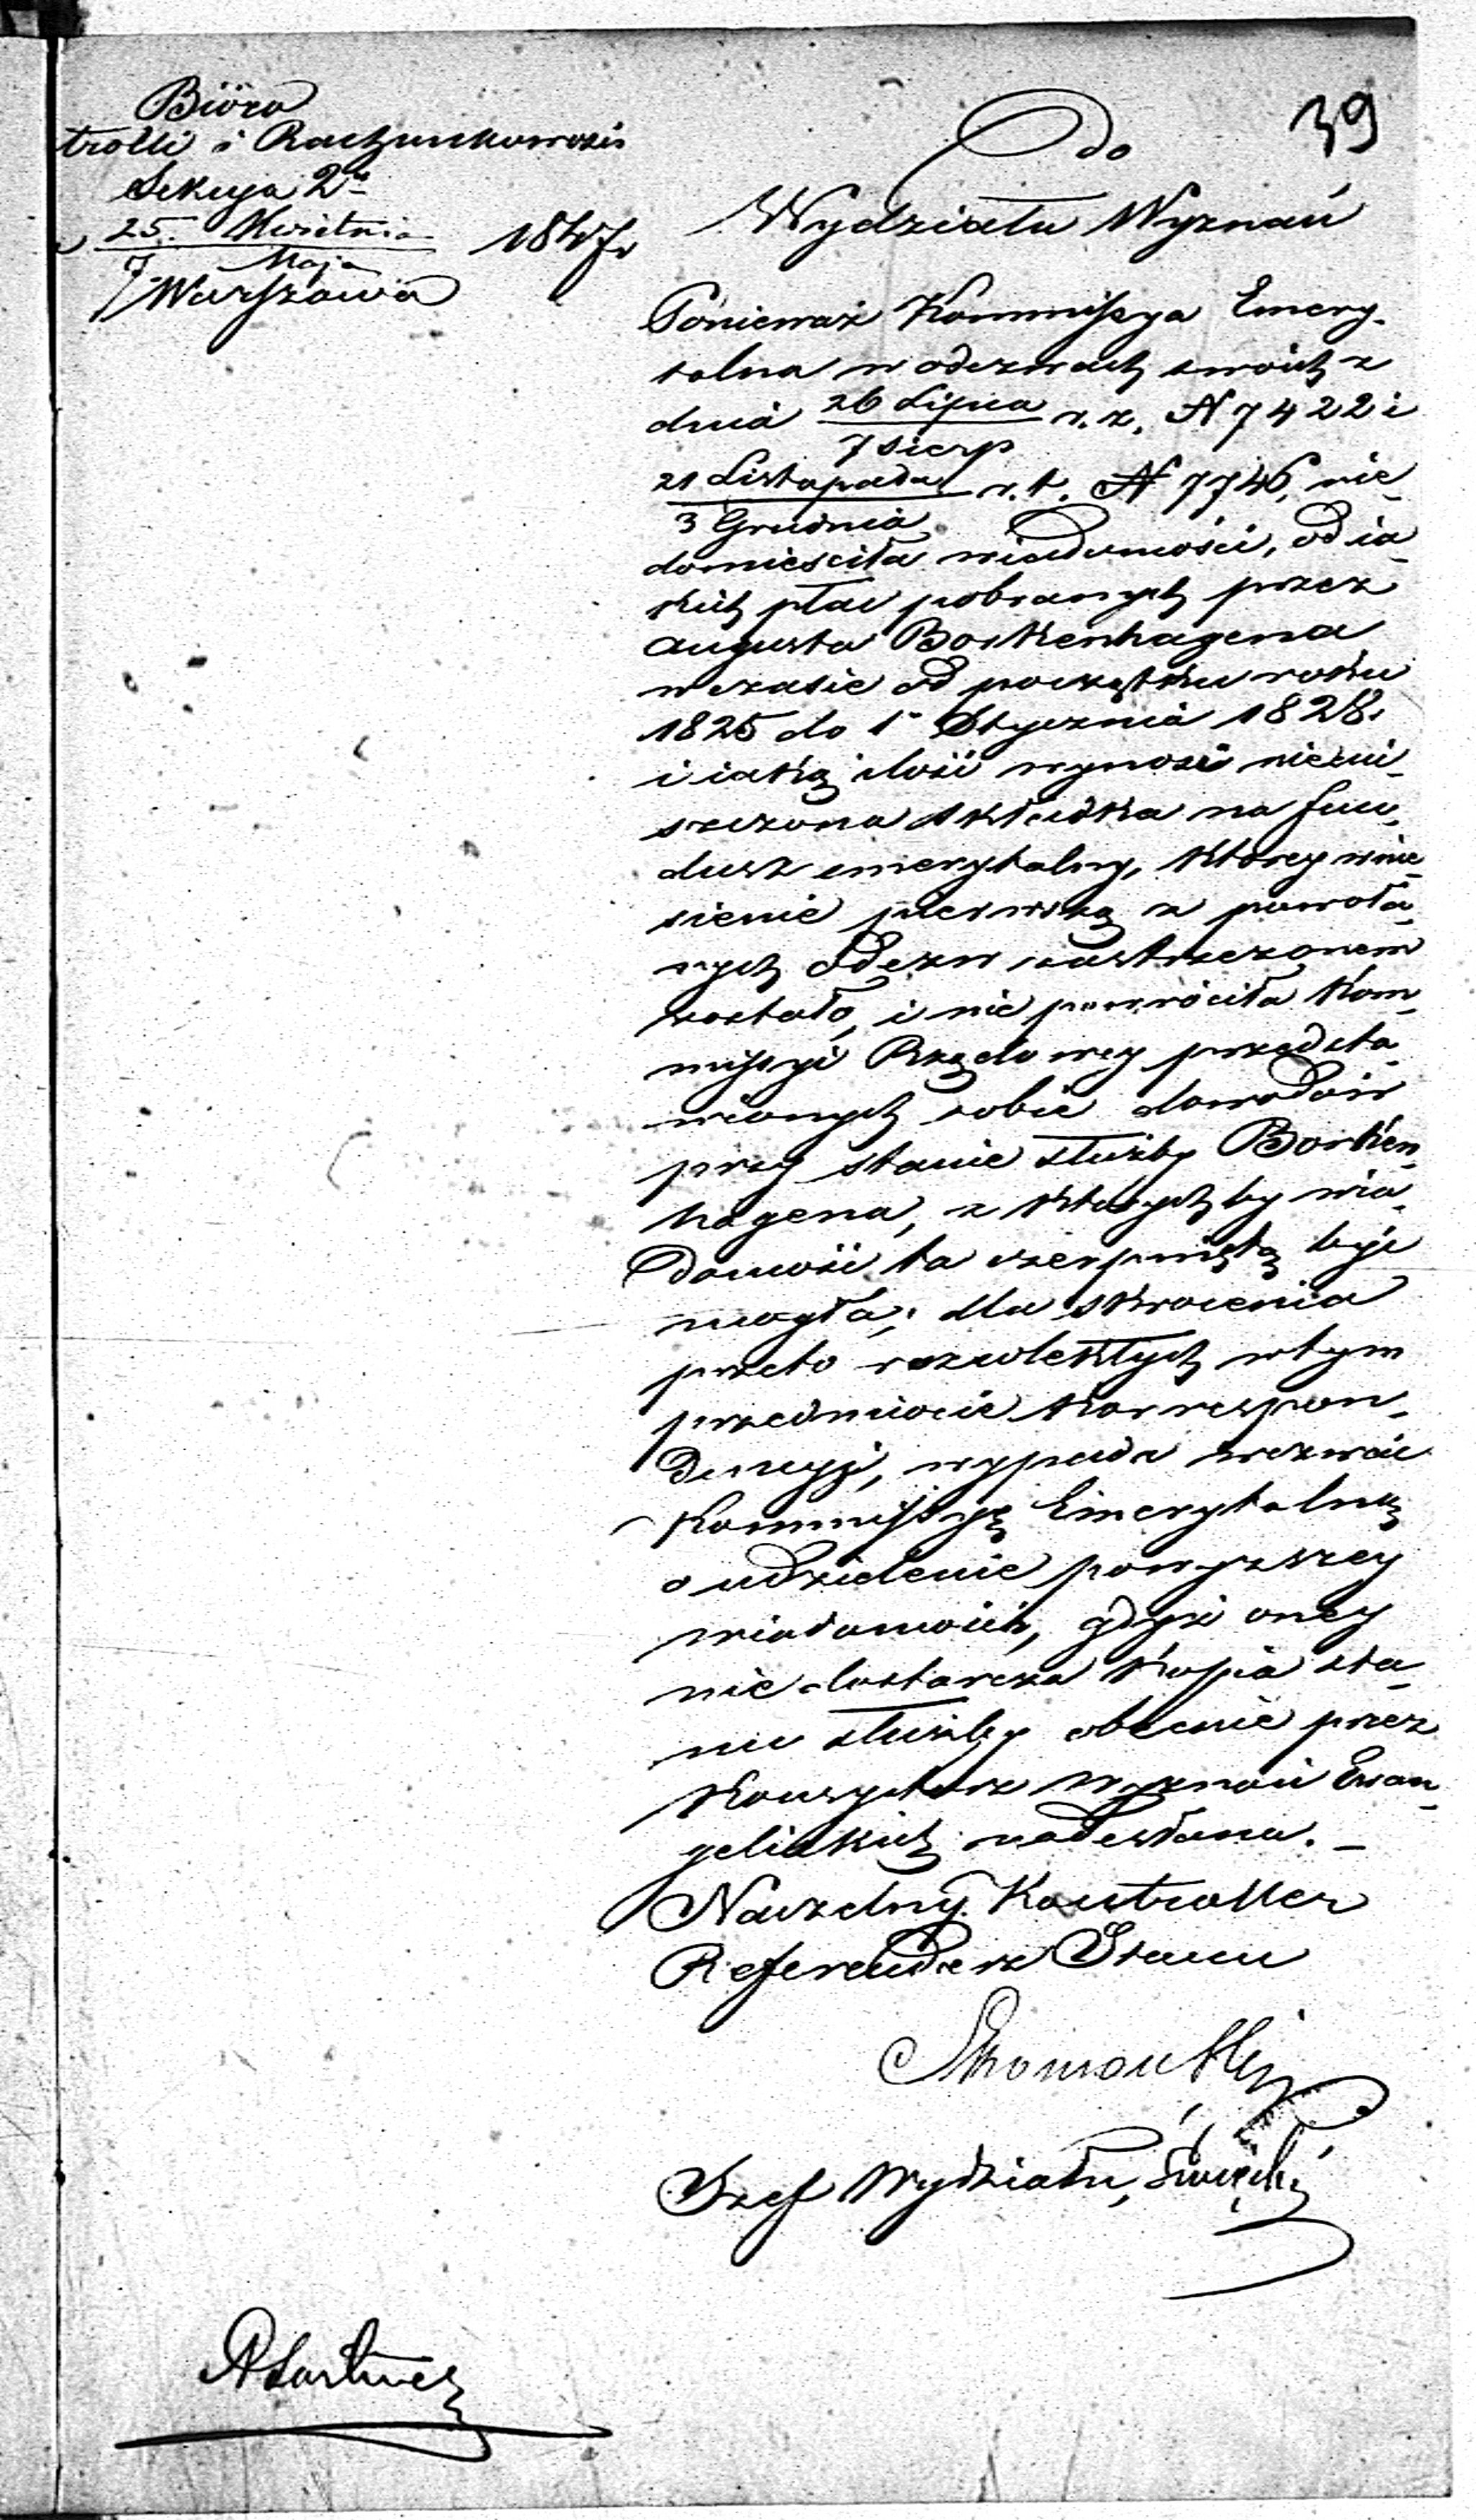 39
Biöro
trolli i Rachunkowości
Sekcya 2a
25. Kwietnia
7 Maja
1847r
Warszawa
Do
Wydziału Wyznań
Ponieważ Kommissya Emery-
talna w odezwach swoich z
dnia 26 Lipca r.z. N 7422 i
7 Sierp
21 Listopada r.t. N 7746, nie
3 Grudnia
domieściła wiadomości, od ia-
kich płac pobranych przez
Augusta Borkenhagena
w czasie od początku roku
1825 do 1o Stycznia 1828.
i iaką ilość wynosi nieui-
szczona składka na fun-
dusz emerytalny, którey wnie-
sienie pierwszą z powoła-
nych odezw zastrzeżonem
zostało, i nie powróciła Kom-
missyi Rządowey przedsta-
wionych sobie dowodów
przy stanie służby Borken-
hagena, z którychby wia-
domość ta czerpniętą być
mogła; dla skrócenia
przeto rozwlekłych w tym
przedmiocie korrespon-
dencyi, wypada wezwać
Kommissyę Emerytalną
o udzielenie powyższey
wiadomości, gdyż oney
nie dostarcza kopia sta-
nu służby obecnie przez
Konsystorz Wyznań Ewan-
gelickich nadesłana. _
Naczelny Kontroller
Referendarz Stanu
Szef Wydziału, Święcki